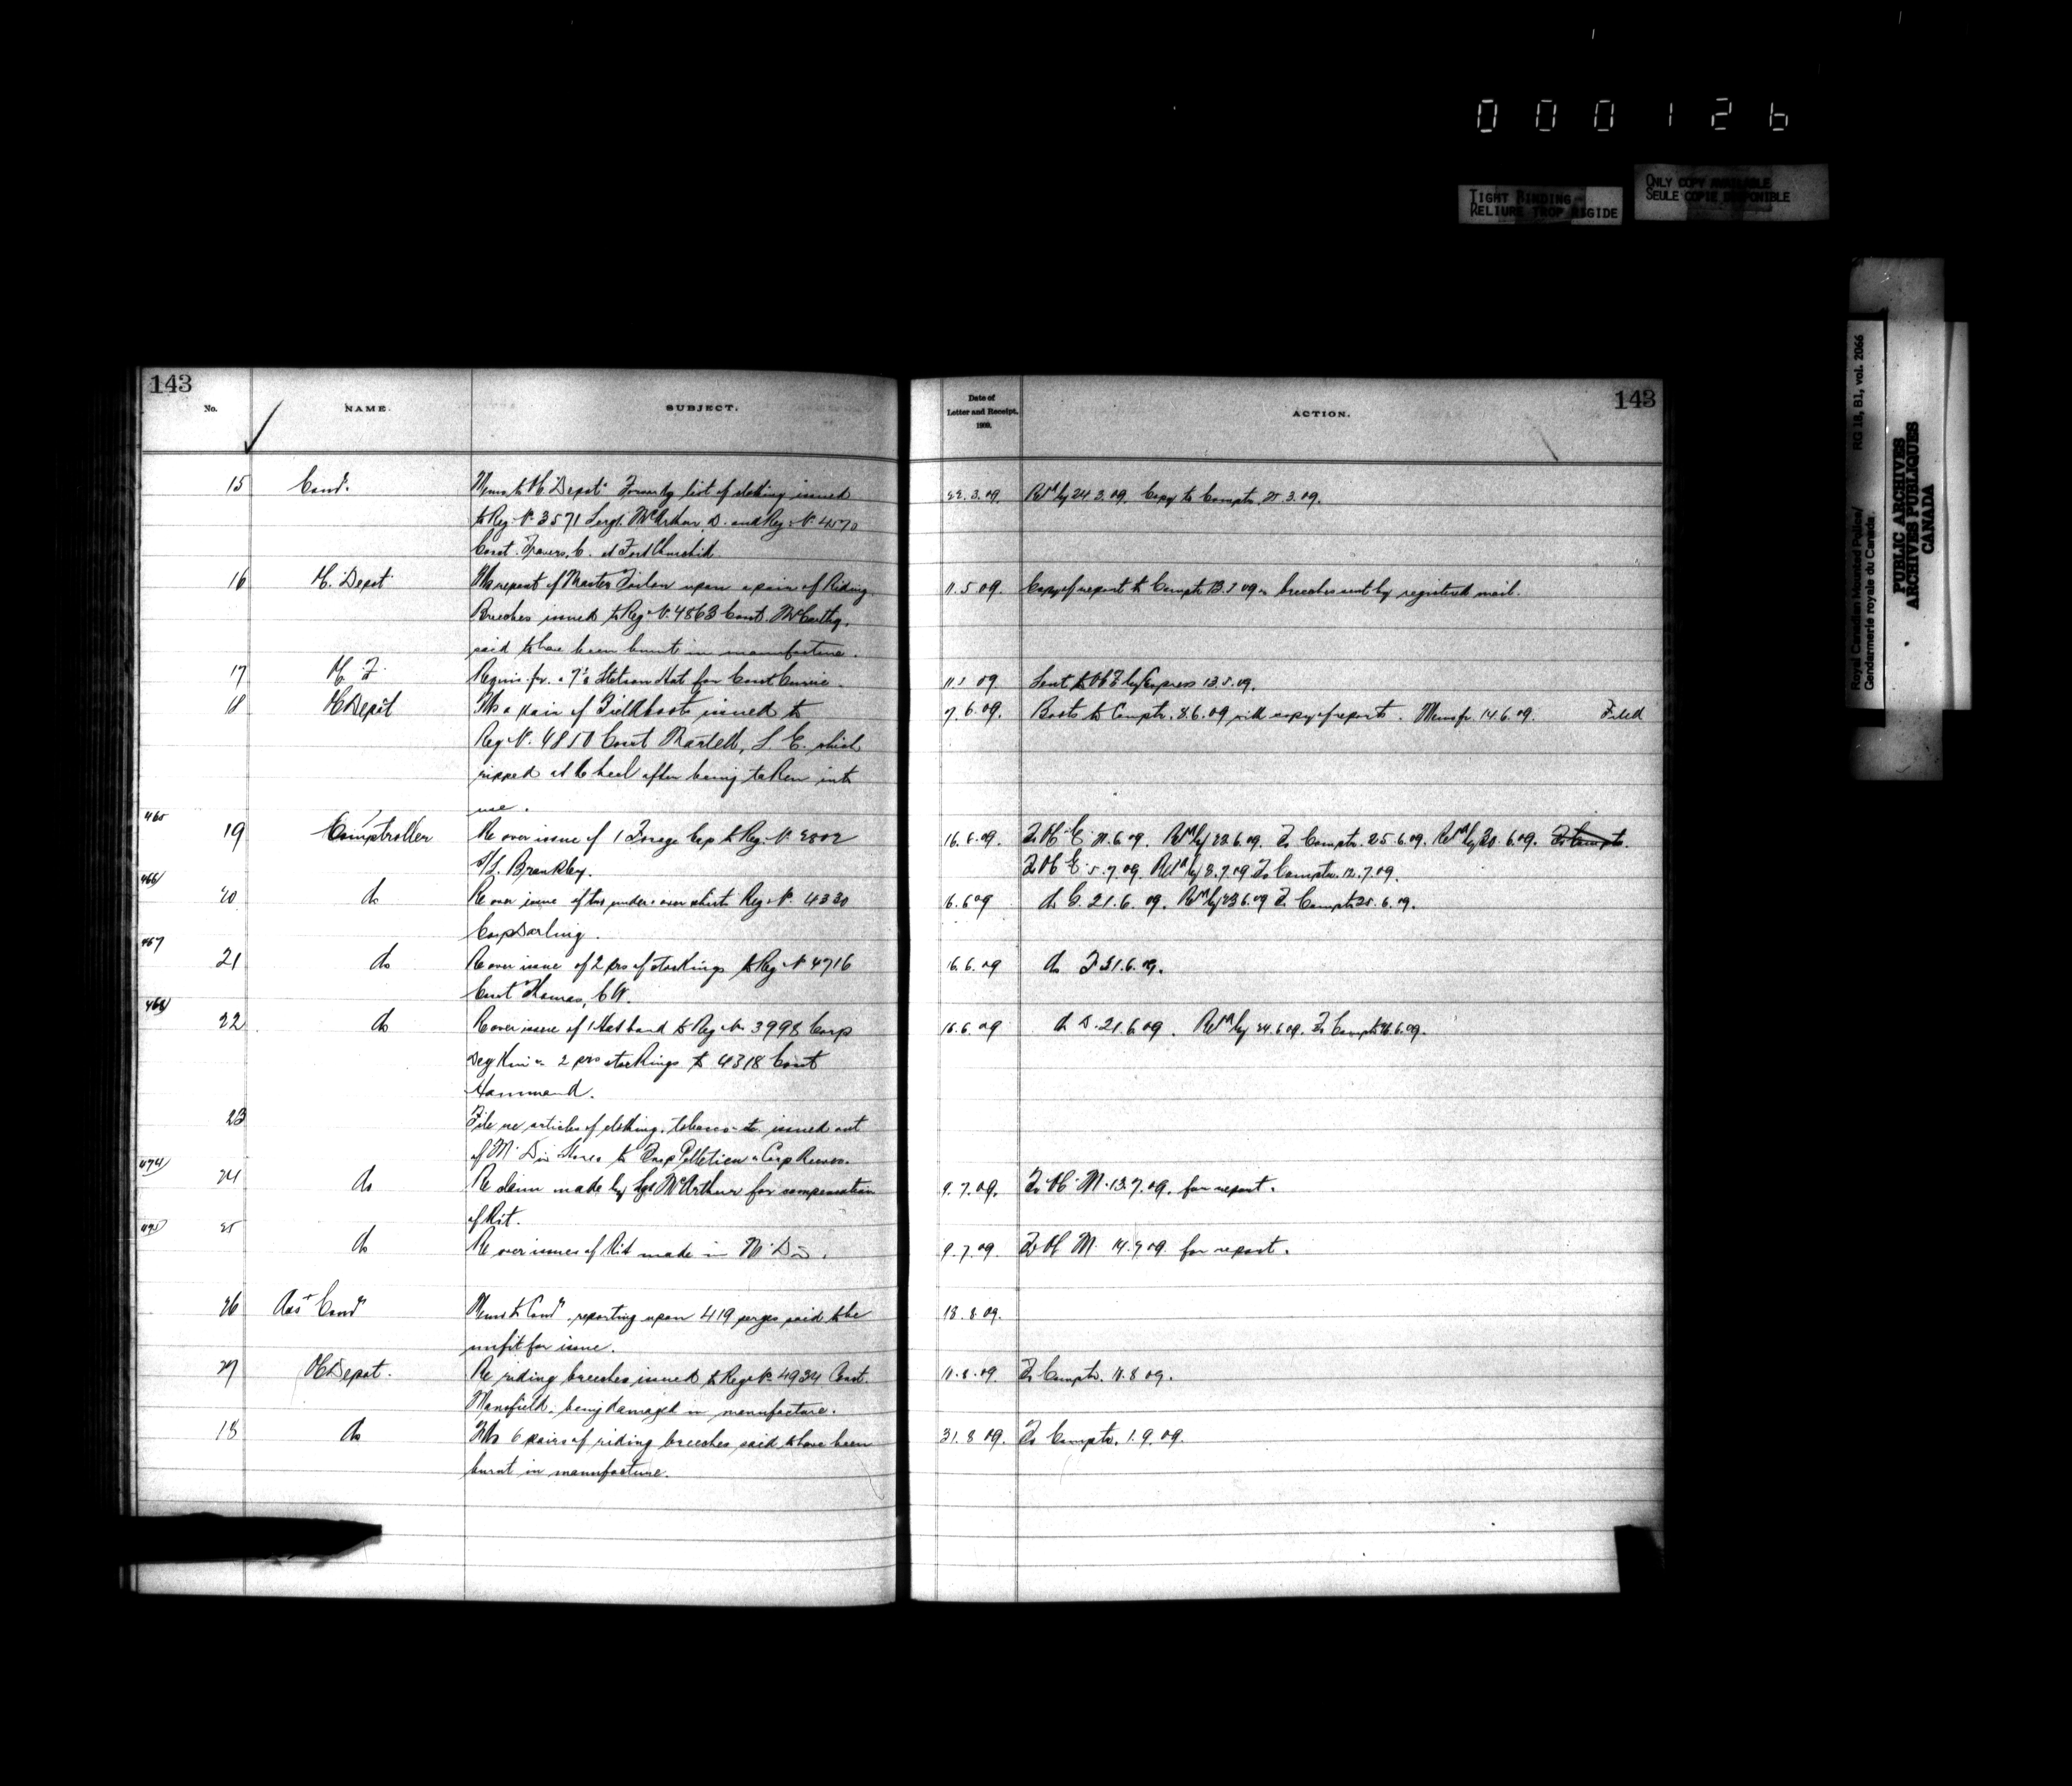 000126
TIGHT BINDING
RELIURE TROP RIGIDE
ONLY COPY AVAILABLE
SEULE COPIE DISPONIBLE
Royal Canadian Mounted Police/ RG 18, B1, vol. 2066
Gendarmerie royale du Canada
PUBLIC ARCHIVES
ARCHIVES PUBLIQUES
CANADA
143
No. NAME. SUBJECT.
15 Comr. Memo to "Depot" list of clothing issued
to Reg. No. 3571 Sergt. McArthur, D. and Reg. No. 4570
Const. Travers, C. at Fort Churchill
16 Depot report of Master Tailor upon a pair of Riding
Breeches issued to Reg. No. 4863 Const. McCarthy,
said to have been burnt in manufacture.
17 Requis. for Stetson Hat for Const Currie.
18 Depot a pair of Fieldboots issued to
Reg. No. 4850 Const Martell, which
ripped at the heel after being taken into
use.
465
19 Comptroller Re over issue of 1 Forage Cap to Reg. No.
S/S. Brankley.
466
20 do Re over issue of two under shirts Reg. No. 4330
Corp Darling.
467
21 do Re over issue of 2 prs of stockings to Reg. No 4716
Const Thomas, C W.
468
22 do Re over issue of 1 Hat band to Reg. No. 3998 Corp
2 prs stockings to 4318 Const
Hammond.
23 File re articles of clothing, tobacco etc. issued out
of "M" Div Stores to Corp Pelletier & Corp Reeves.
474
24 do Re claim made by Sgt McArthur for compensation
of Kit.
475
25 do Re over issues of Kit made in "M" Div.
26 Asst Comr Memo to Comr, reporting upon 419 serges said to be
unfit for issue.
27 Depot. Re riding breeches issued to Reg. No. 4934 Const.
Mansfield, being damaged in manufacture.
18 do 6 pairs of riding breeches said to have been
burnt in manufacture.
143
Date of
Letter and Receipt,
1909.
ACTION.
22.3.09. Retd by 24.3.09. Copy to Comptr. 25.3.09.
11.5.09. Copy of report to Comptr 13.5.09 & breeches sent by registered mail.
11.5.09. Sent to by Express 13.5.09.
7.6.09. Boots to Comptr. 8.6.09 with copy of reports. Memo fr. 14.6.09. Filed
16.6.09. To 21.6.09. Retd by 23.6.09. To Comptr. 25.6.09. Retd by 30.6.09. To Comptr.
To 5.7.09. Retd by 8.7.09 To Comptr. 12.7.09.
16.6.09 do G. 21.6.09. Retd by 23.6.09 To Comptr 25.6.09.
16.6.09 do F 21.6.09.
16.6.09 do D. 21.6.09. Retd by 24.6.09. To Comptr 26.6.09.
9.7.09. To M. 13.7.09. for report.
9.7.09. To M. 14.7.09. for report.
18.8.09.
11.8.09. To Comptr. 11.8.09.
31.8.09. To Comptr. 1.9.09.